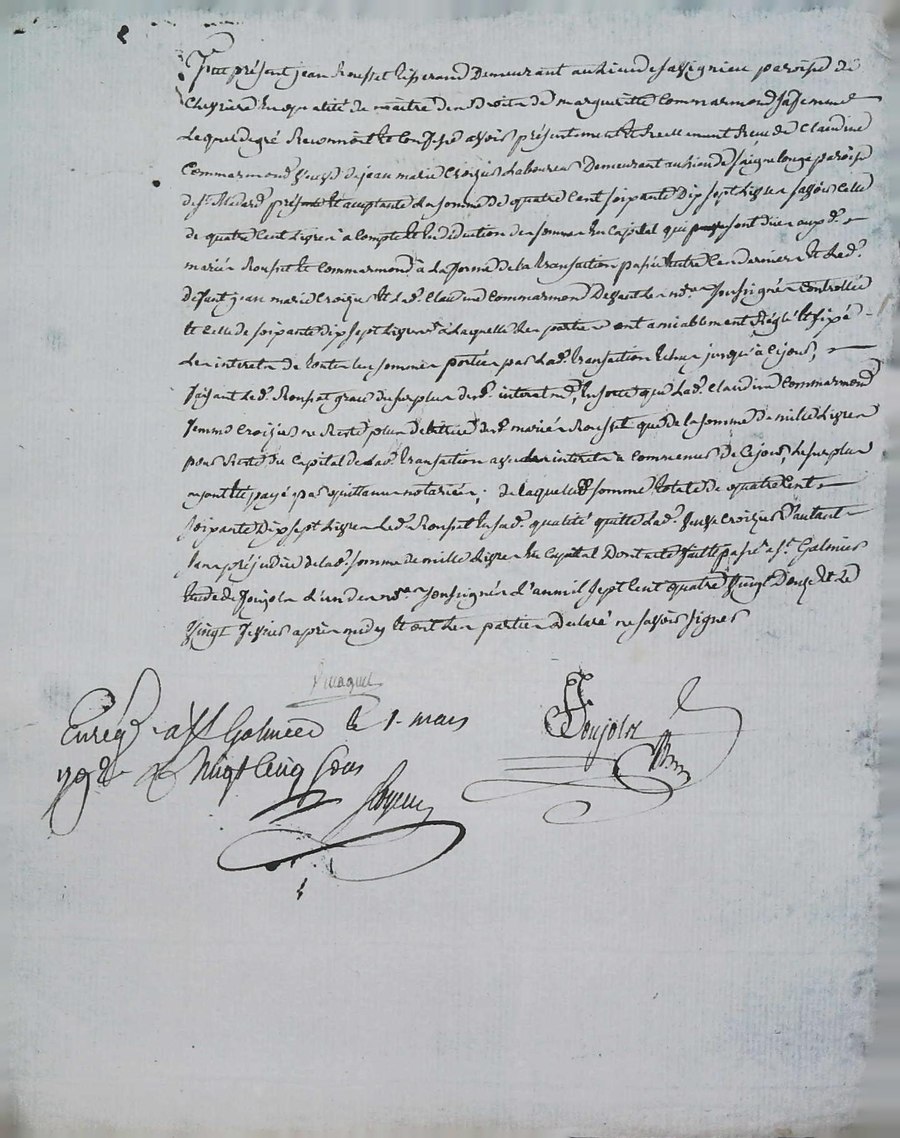 Fut présent jean Rousset tisserand Demeurant au lieu de Savignieu paroisse de
Chevriere en qualité de maitre des Droits de marguerite Commarmond sa femme
Lequel de gré Reconnoit et Confesse avoir présentement et Reellement Reçu de Claudine
Commarmond Veuve de jean marie Croizier Laboureur Demeurant au lieu de Saignelonge paroisse
de St. Medard présente et acceptante La somme de quatre Cent soixante Dix sept Livres sçavoir Celle
de quatre Cent Livres à Compte et en déduction des sommes En Capital qui sont dües auxd.
mariés Rousset et Commarmond à La forme de la transaction passée Entre Ces derniers et Led.
défunt jean marie Croizier et Lad. Claudine Commarmond Devant Les nres. Soussignés Controllée
et Celle de soixante dix sept Livres à Laquelle Les parties ont amiablement Réglé et fixé
Les interets de toutes Les sommes portées par Lad. transaction Echus jusqu'à Ce jour,
faisant Led. Rousset grace du surplus desd. interets, En sorte que Lad. Claudine Commarmond
femme Croizier ne Reste plus débitrice desd. mariés Rousset que de la somme de mille Livres
pour Reste du Capital de Lad. transaction avec les interets à Commencer de Ce jour, Le surplus
ayant été payé par quittances notariées; de Laquelle somme totale de quatre Cent
soixante Dix sept Livres Led. Rousset En sad. qualité quitte Lad. Veuve Croizier D'autant
sans préjudice de lad. somme de mille Livres En Capital Dont acte fait et passé a St. Galmier
Etude de Poujola L'un des nres. Soussignés L'an mil sept Cent quatre Vingt Douze et Le
Vingt Fevrier après midy et ont Les parties Declaré ne sçavoir signer
Poujola
Enrég. a St Galmier le 1. mars
1792 Vingt Cinq Sous